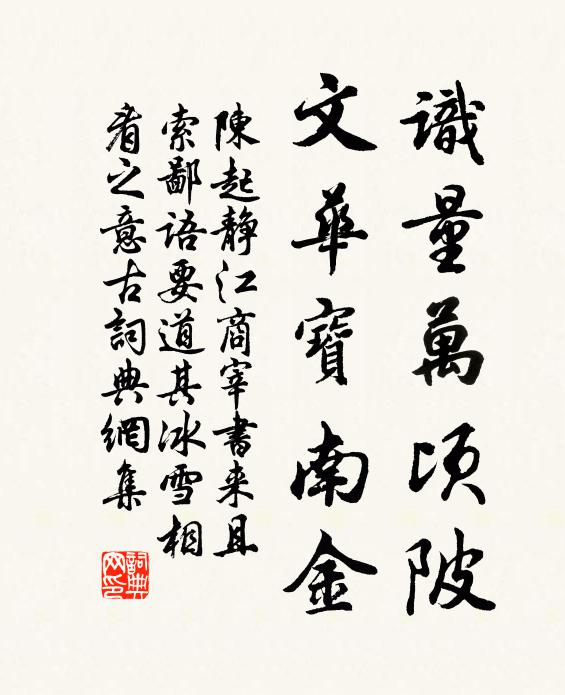 識量萬頃陂
文華寶南金
陳起静江商宰書来且
索鄙语要道其冰雪相
看之意古詞典網集
詞典网印